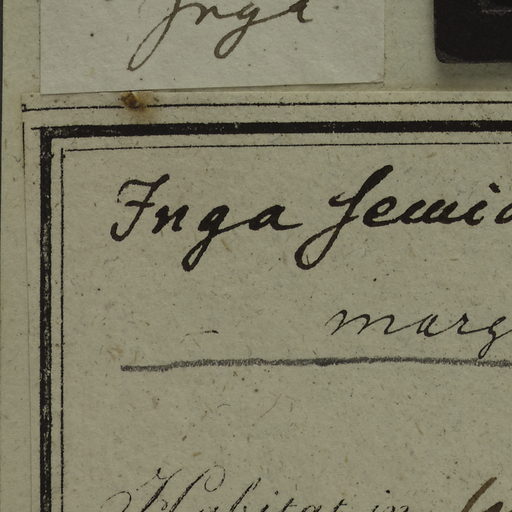 Inga
Inga semia
marg
Habitat in